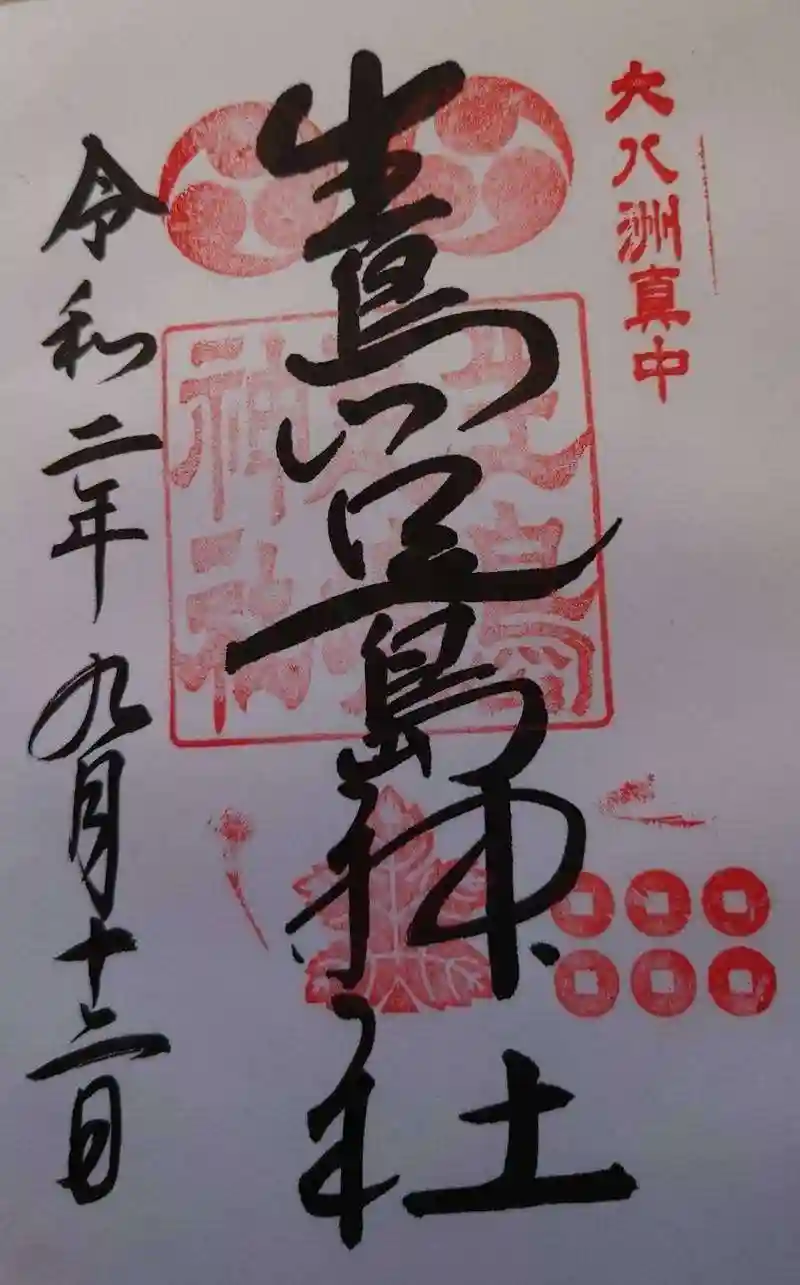 大八洲真中
生島足島神社
生島
足島
神社
令和二年九月十二日